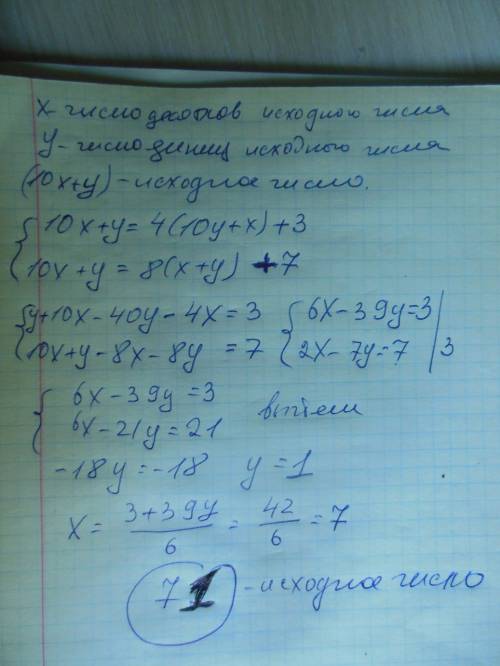 x - число десятков исходного числа
y - число единиц исходного числа
(10x+y) - исходное число.
{ 10x+y = 4(10y+x)+3
10x+y = 8(x+y) + 7
{ y+10x-40y-4x = 3 { 6x-39y=3
10x+y-8x-8y = 7 2x-7y=7 | 3
{ 6x-39y=3 вычтем
6x-21y=21
-18y=-18 y=1
x = (3+39y)/6 = 42/6 = 7
71 - исходное число